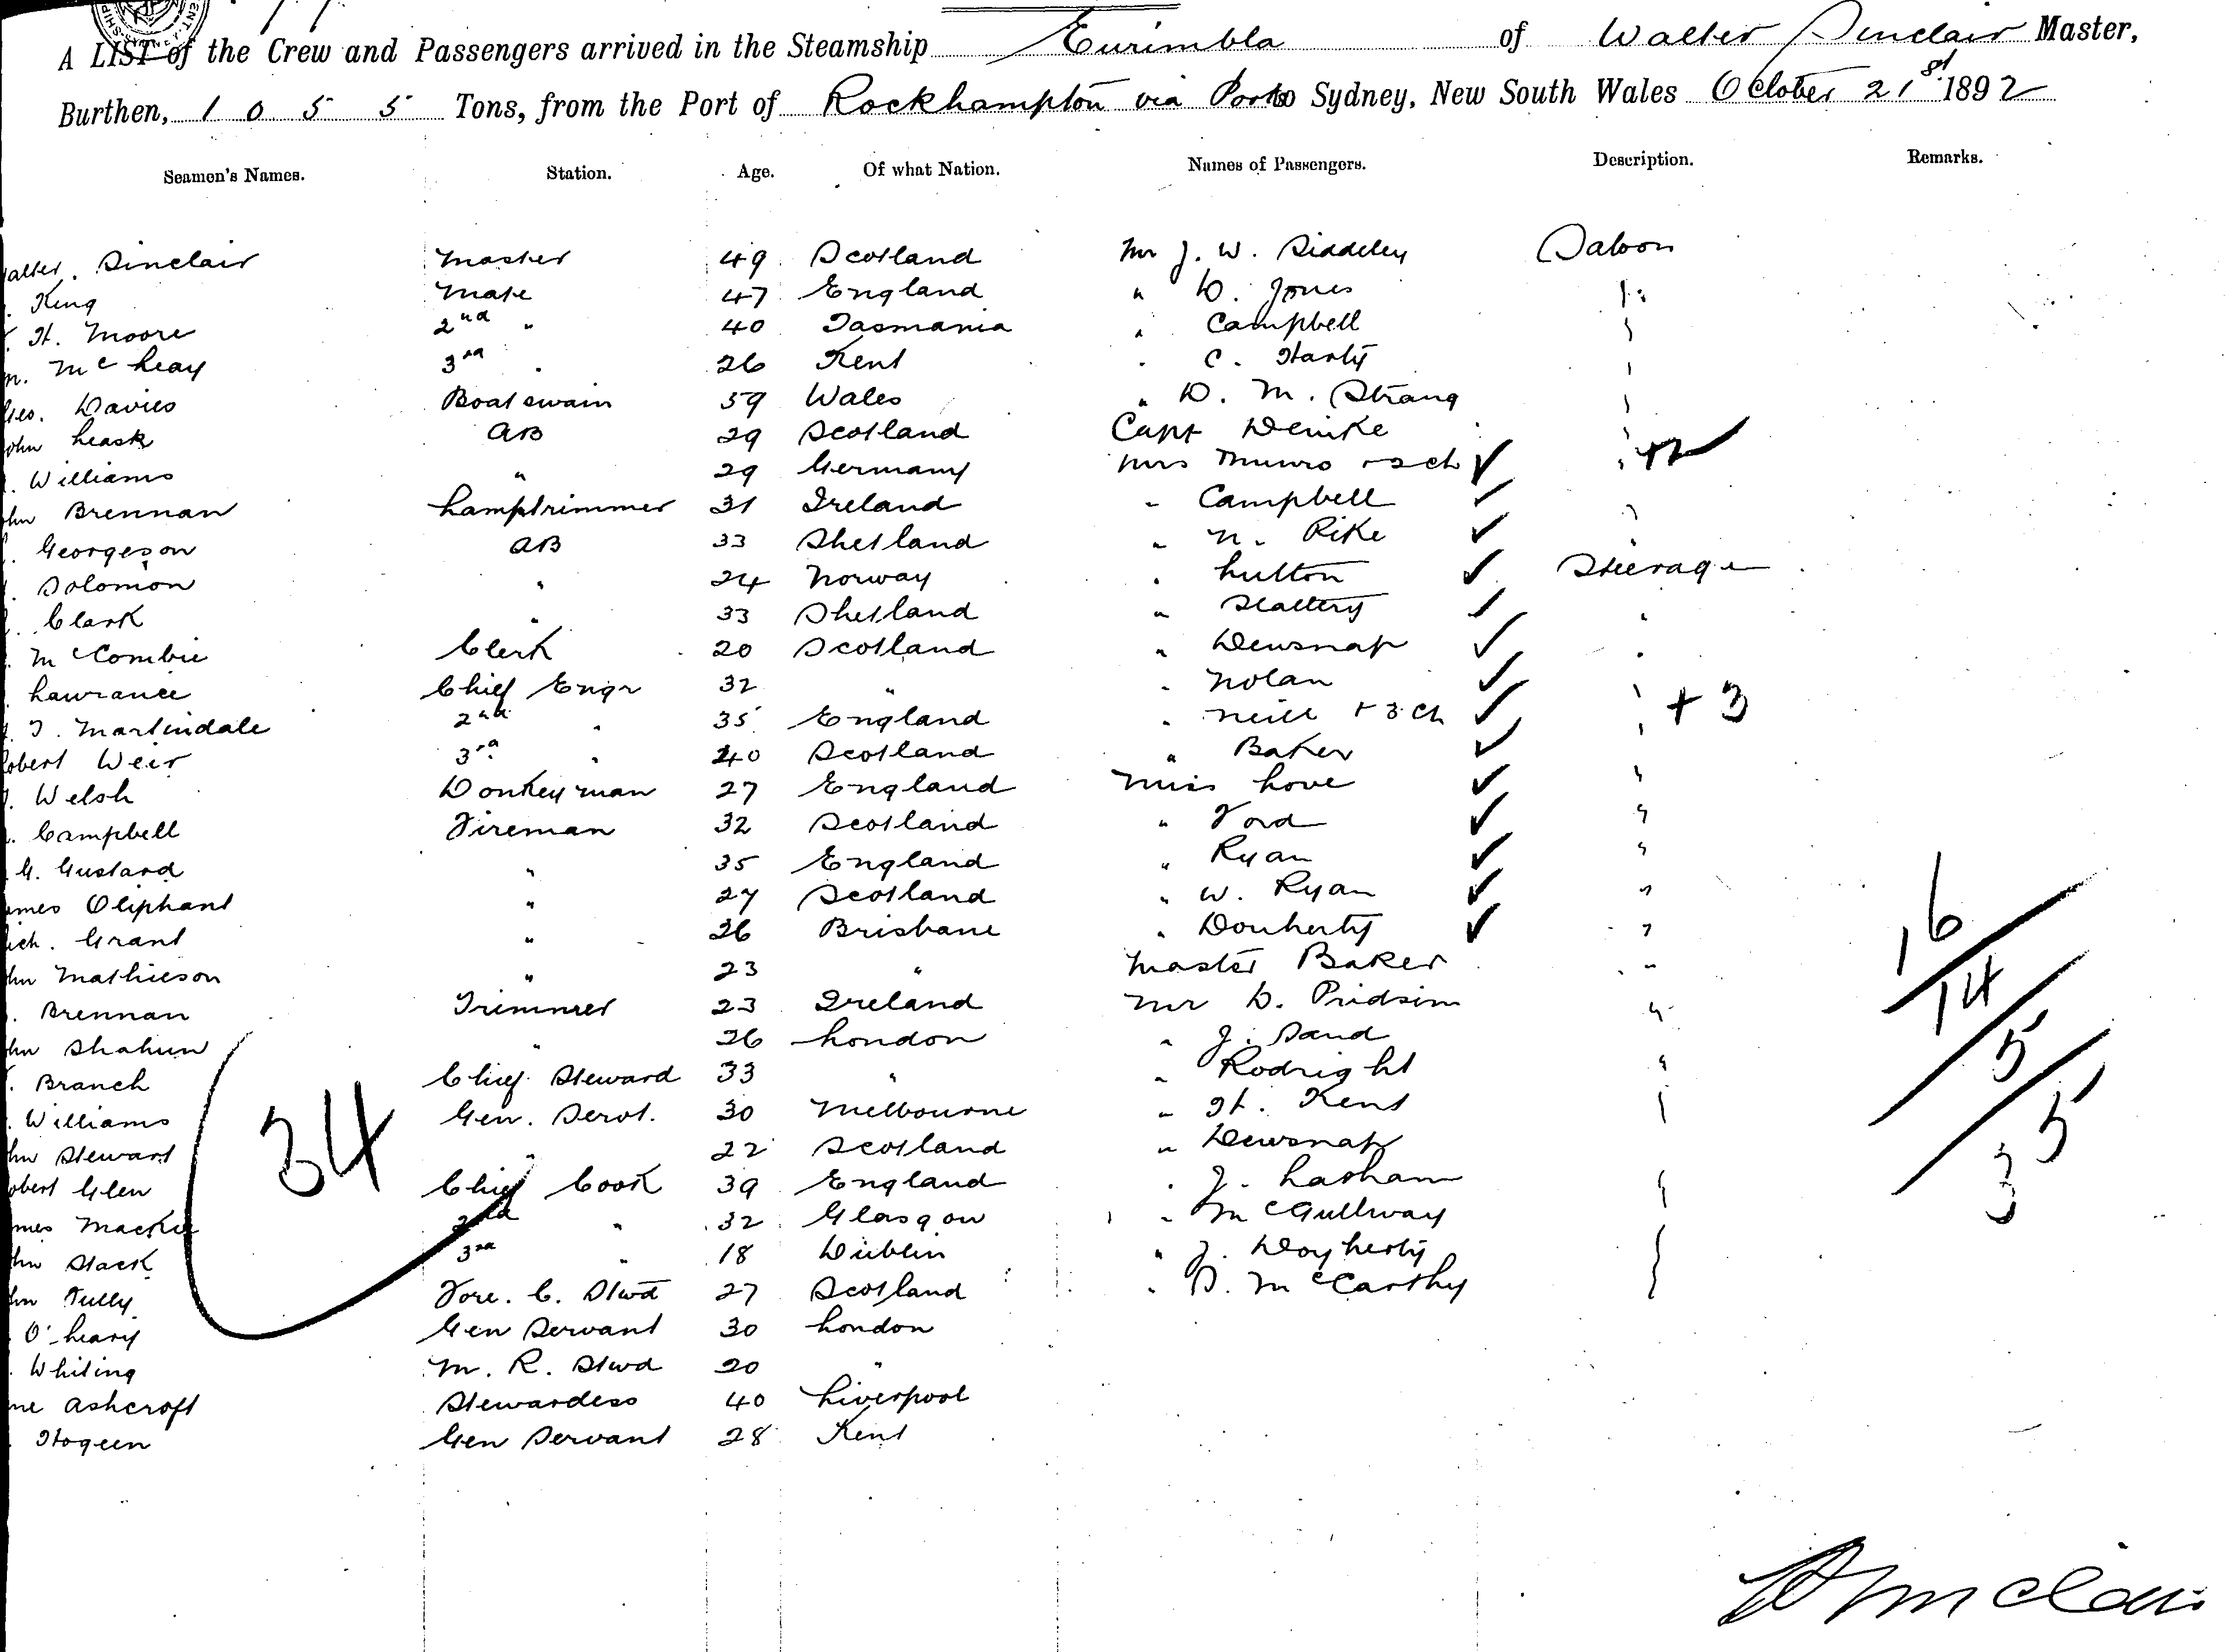 A LIST of the Crew and Passengers arrived in the Steamship Eurimbla of Walter Sinclair Master,
Burthen, 1055 Tons, from the Port of Rockhampton via Ports to Sydney, New South Wales October 21st 1892
Seamen's Names. Station. Age. Of what Nation. Names of Passengers. Description. Remarks.
alter. Sinclair Master 49 Scotland Mr J. W. Siddeley Saloon
King Mate 47 England " D. Jones "
H. Moore 2nd " 40 Tasmania " Campbell "
m. McLeay 3rd " 26 Kent " C. Harty "
Geo. Davies Boatswain 59 Wales " D. M. Strang "
ohn Leask AB 29 Scotland Capt Denike "
Williams " 29 Germany Mrs Munro + 2 ch ✓ " +2
hn Brennan Lamptrimmer 31 Ireland " Campbell ✓ "
Georgeson AB 33 Shetland " N. Pike ✓
Solomon " 24 Norway " Lutton ✓ Steerage
Clark " 33 Shetland " Slattery ✓ "
McCombie Clerk 20 Scotland " Dewsnap ✓ "
Lawrance Chief Engr 32 " " Nolan ✓ "
T. Martindale 2nd " 35 England " Neill + 3 ch ✓ " + 3
obert Weir 3rd " 40 Scotland " Baker ✓
Welsh Donkeyman 27 England Miss Love ✓ "
Campbell Fireman 32 Scotland " Ford ✓ "
G. Gustard " 35 England " Ryan ✓ "
ames Oliphant " 27 Scotland " W. Ryan ✓ "
ich. Grant " 26 Brisbane " Douherty ✓ "
hn Mathieson " 23 " Master Baker "
Brennan Trimmer 23 Ireland Mr D. Pridsim "
hn Shahun " 26 London " J. Sand
Branch Chief Steward 33 " " Rodright "
Williams Gen. Servt. 30 Melbourne " H. Kent "
hn Stewart " 22 Scotland " Dewsnap
obert Glen Chief Cook 39 England " J. Lasham "
mes Mackie 2nd " 32 Glasgow " McGullway
hn Stack 3rd " 18 Dublin " J. Dogherty "
hn Tully Fore. C. Stwd 27 Scotland " D. McCarthy "
O'Leary Gen Servant 30 London
Whiting M. R. Stwd 20 "
ne Ashcroft Stewardess 40 Liverpool
Hogeen Gen Servant 28 Kent
34
16
14
5
5
3